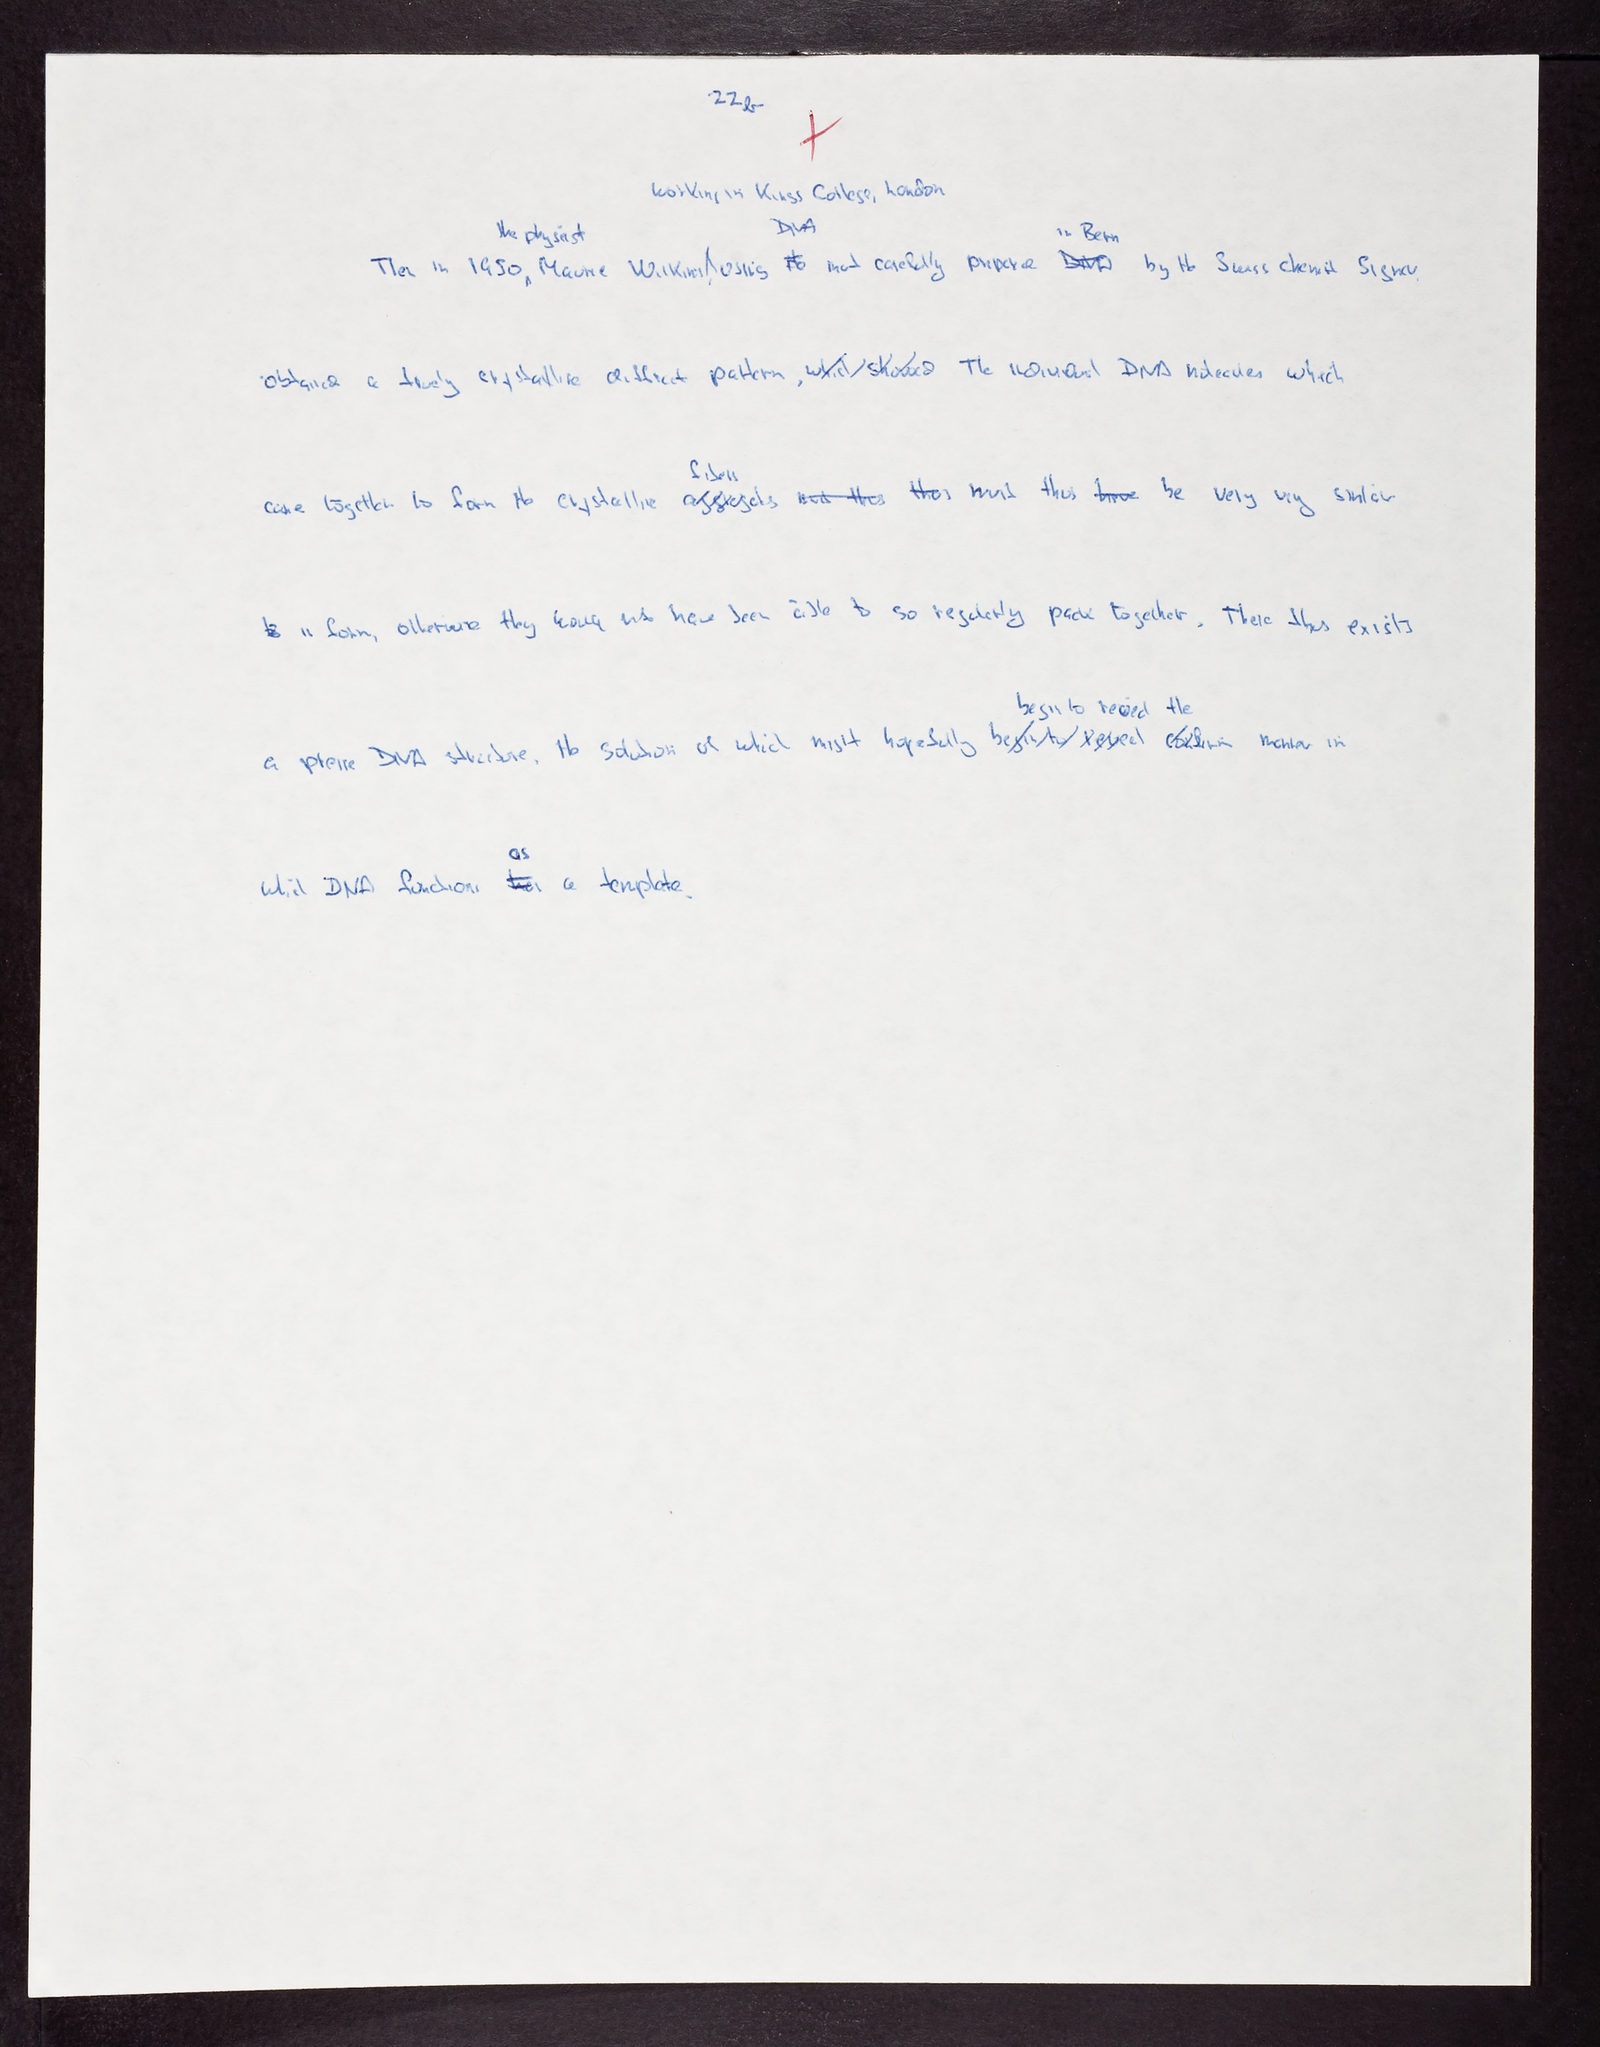 22b
working in Kings College, London
the physicist DNA in Bern
Then in 1950, Maurice Wilkins, using the most carefully prepared DNA by the Swiss chemist Signer,
obtained a truly crystalline diffract pattern, which showed The individual DNA molecules which
came together to form the crystalline aggregates must thus thus must thus have be very very similar
fibers
to in form, otherwise they would not have been able to so regularly pack together. There thus exists
begin to reveal the
a precise DNA structure, the solution of which might hopefully begin to reveal manner in
as
which DNA functions a template.